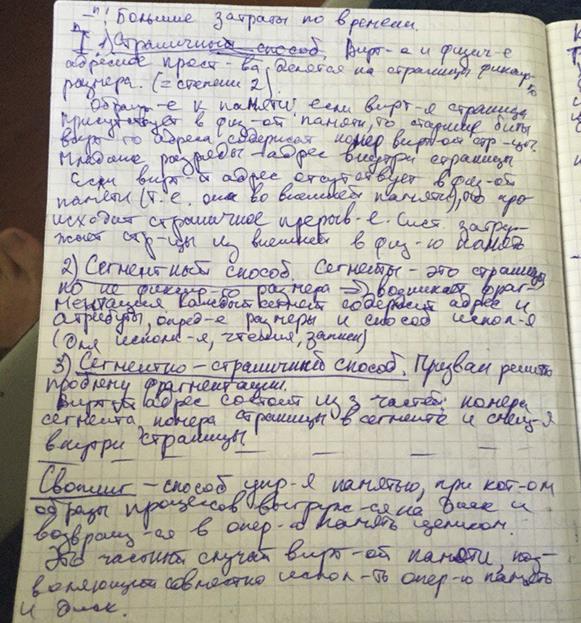 –"! Большие затраты по времени.
1) Страничный способ. Вирт-е и физич-е
адресное прост-ва делятся на страницы фиксир-го
размера. (= степени 2).
Обращ-е к памяти: если вирт-я страница
присутствует в физ-ой памяти, то старшие биты
вирт-го адреса содержат номер вирт-ой стр-цы.
Младшие разряды – адрес внутри страницы
Если вирт-й адрес отсутствует в физ-ой
памяти (т.е. она во внешней памяти), то про-
исходит страничное прерыв-е. Сист. загру-
жает стр-цы из внешней в физ-ю память
2) Сегментный способ. Сегменты – это страницы
но не фиксир-го размера => возникает фраг-
ментация каждый сегмент содержит адрес и
атрибуты, опред-е размеры и способ использ-я
(для исполн-я, чтения, записи)
3) Сегментно-страничный способ. Призван решить
проблему фрагментации.
Вирт-й адрес состоит из 3 частей номера
сегмента, номера страницы в сегменте и смещ-я
внутри страницы
Свопинг – способ упр-я памятью, при кот-ом
образы процессов выгруж-ся на диск и
возвращ-ся в опер-ю память целиком.
Это частный случай вирт-ой памяти, поз-
воляющий совместно испол-ть опер-ю память
и диск.